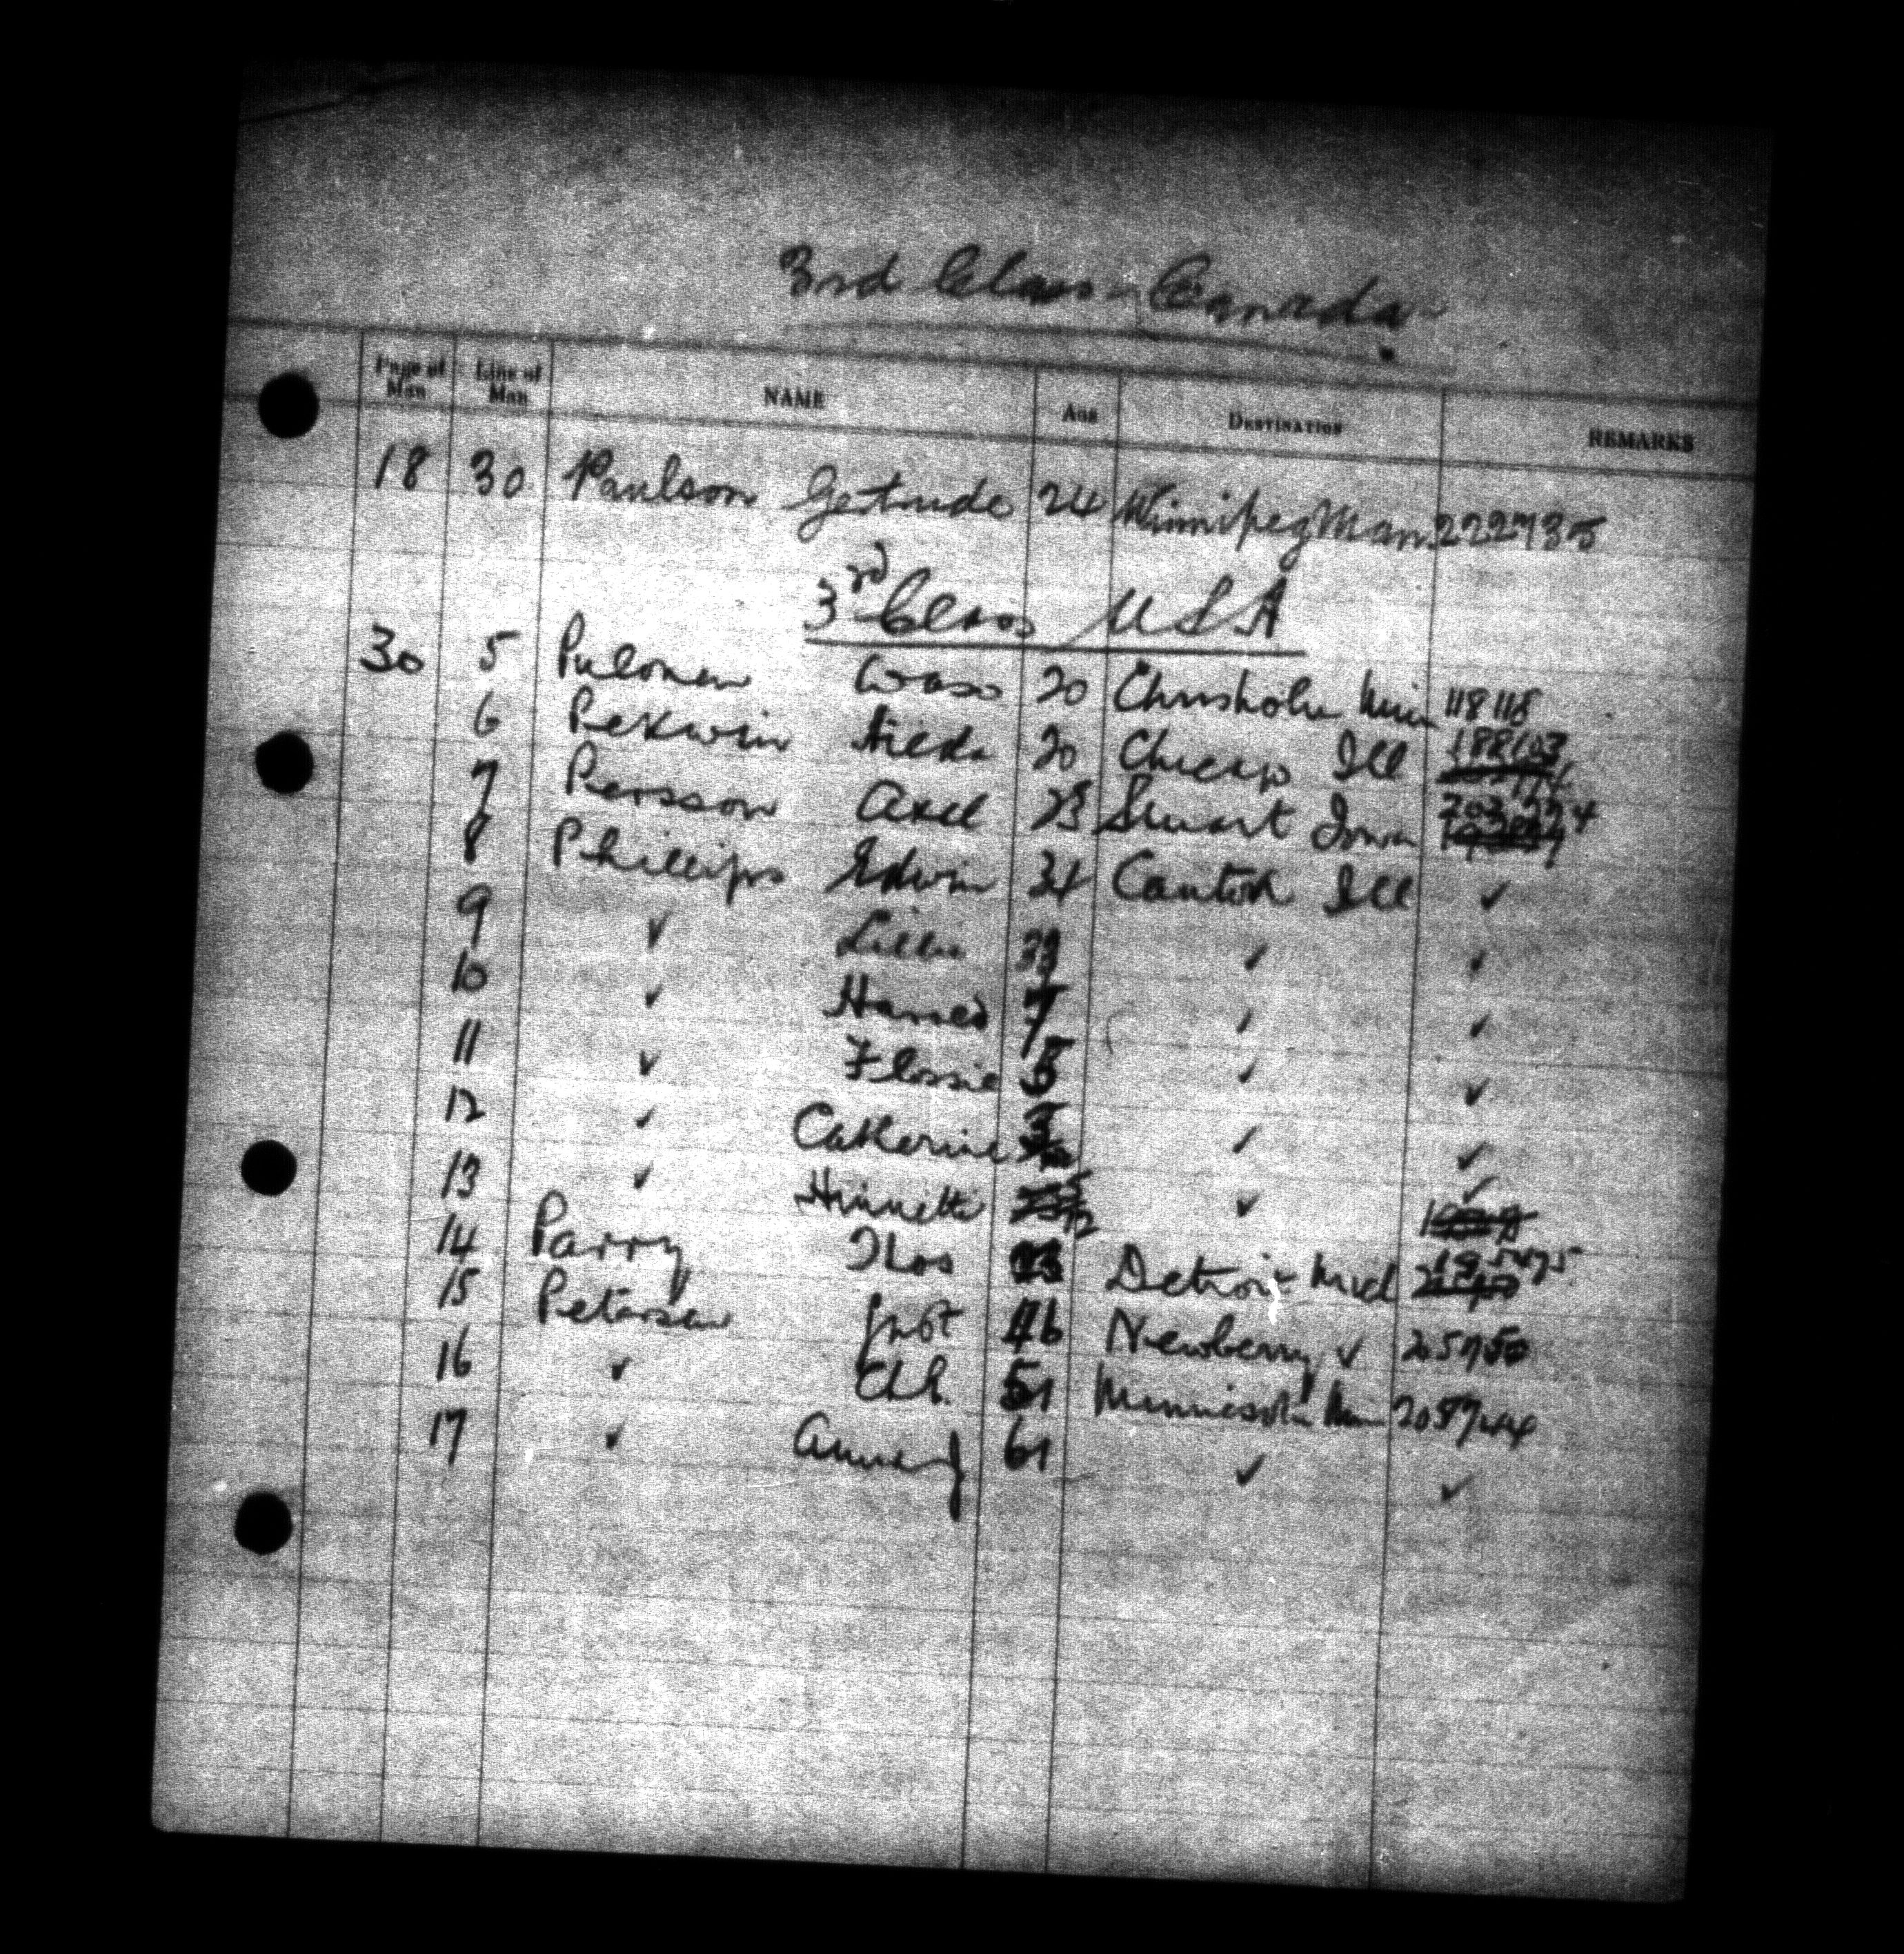 3rd Class - Canada
Page of Man Line of Man NAME AGE DESTINATION REMARKS
18 30 Paulson Gertrude 24 Winnipeg Man. 222735
3rd Class USA
30 5 Pulonen 20 Chrisholm Min 118118
6 Rekwin Hilda 20 Chicago Ill 188103
7 Persson Axel 25 Stuart Iowa 203774
8 Phillips Edwin 34 Canton Ill ✓
9 ✓ Lillie 33 ✓ ✓
10 ✓ 7 ✓ ✓
11 ✓ Flossie 5 ✓ ✓
12 ✓ Catherine 3 ✓ ✓
13 ✓ ✓ ✓
14 Parry Thos Detroit Mich 195475
15 Petersen Just 46 Newberry ✓ 205750
16 ✓ 51 Minnesota Min 205744
17 ✓ 61 ✓ ✓